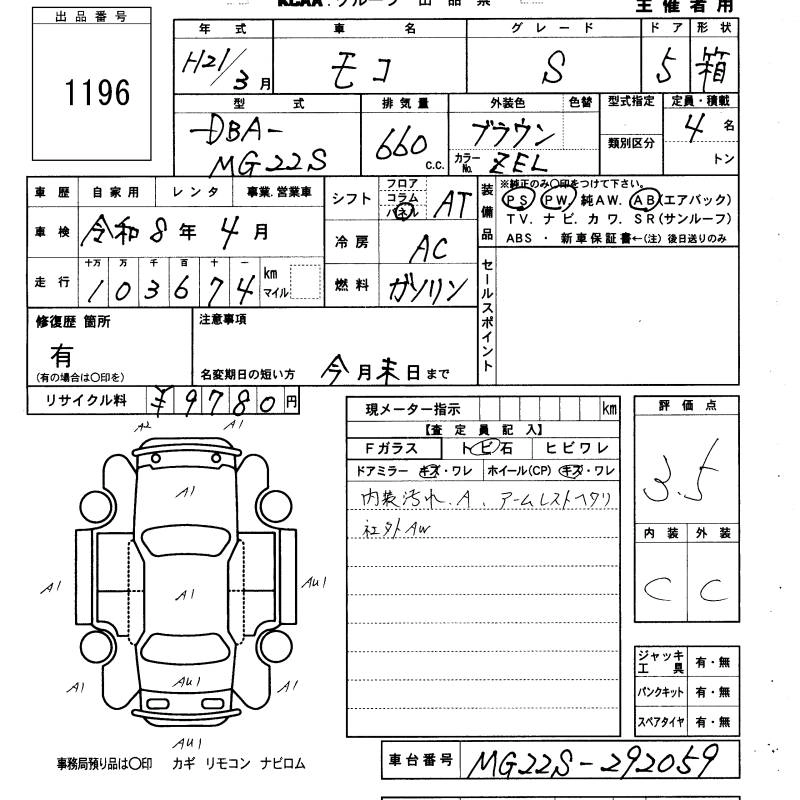 出品番号
1196
主催者用
年式 車名 グレード ドア 形状
H21/3月 モコ S 5 箱
型式 排気量 外装色 色替 型式指定 定員・積載
DBA-MG22S 660 c.c. ブラウン 類別区分 4名
カラーNo. ZEL トン
車歴 自家用 レンタ 事業.営業車
車検 令和8年4月
走行 十万 万 千 百 十 一
103674 km マイル
シフト フロア コラム パネル AT
冷房 AC
燃料 ガソリン
装備品 ※純正のみ〇印をつけて下さい。
PS PW 純AW. AB(エアバック)
TV. ナビ. カワ. SR(サンルーフ)
ABS ・ 新車保証書←(注) 後日送りのみ
セールスポイント
修復歴 箇所
有
(有の場合は〇印を)
注意事項
名変期日の短い方 今月末日まで
リサイクル料 ¥9780円
現メーター指示 km
【査定員記入】
Fガラス トビ石 ヒビワレ
ドアミラー キズ・ワレ ホイール(CP) キズ・ワレ
内装汚れ.A、アームレストヘタリ
社外AW
評価点
3.5
内装 外装
C C
A2 A1
A1
A1 A1 AU1
AU1
A1 A1
AU1
ジャッキ工具 有・無
パンクキット 有・無
スペアタイヤ 有・無
事務局預り品は〇印 カギ リモコン ナビロム
車台番号 MG22S-292059